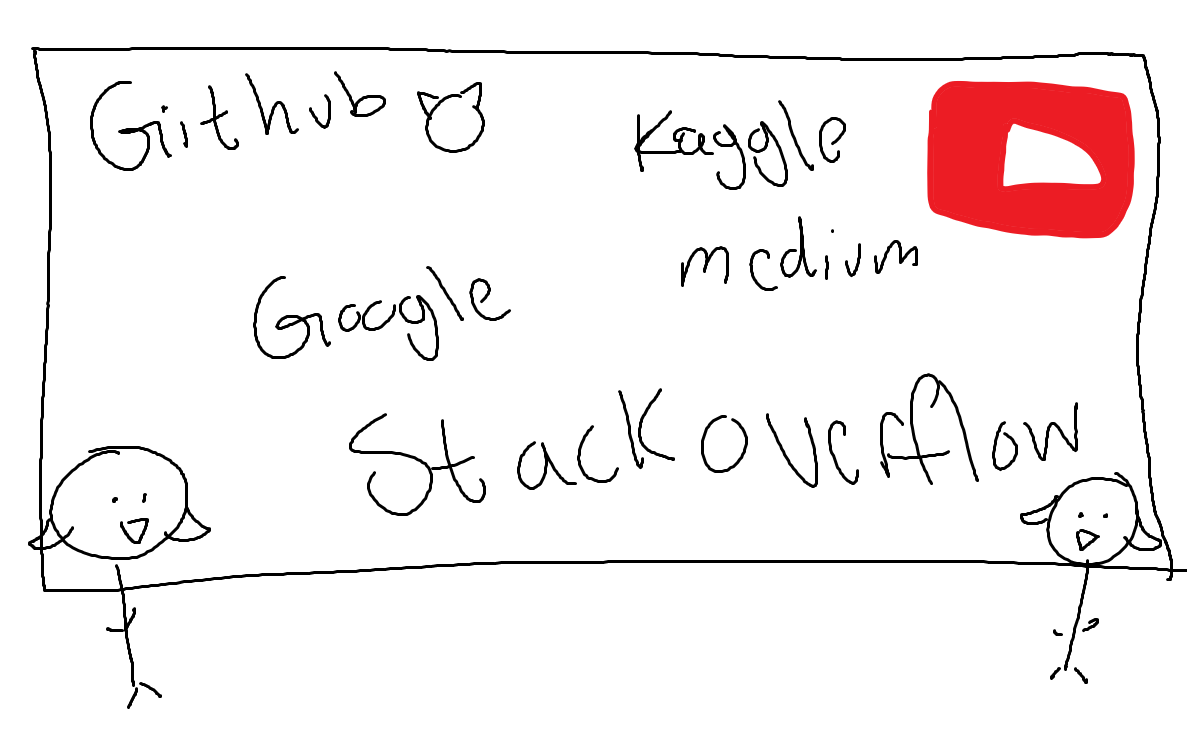 Github
Kaggle
medium
Google
Stack overflow